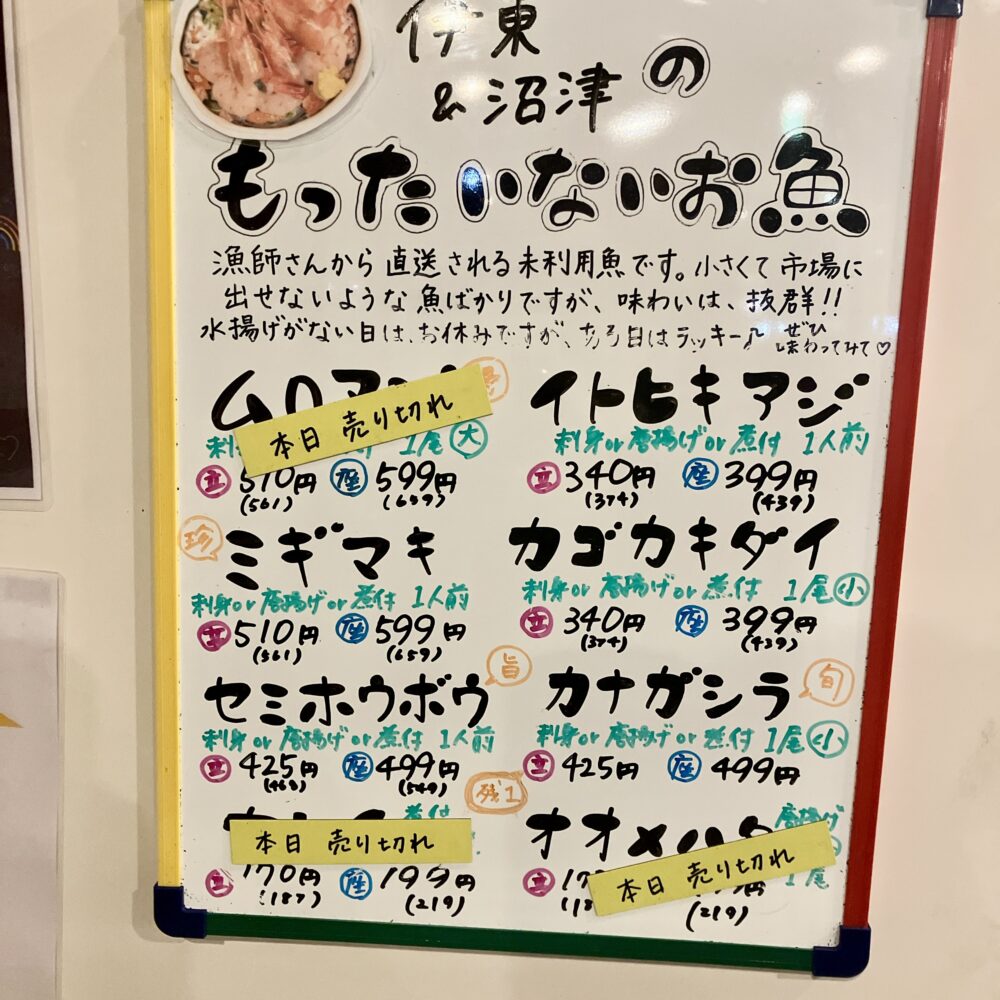 伊東
&沼津の
もったいないお魚
漁師さんから直送される未利用魚です。小さくて市場に
出せないような魚ばかりですが、味わいは、抜群!!
水揚げがない日は、お休みですが、ある日はラッキー♪ ぜひ
味わってみて♡
ムロアジ
本日 売り切れ
刺 1尾 大
立 510円 座 599円
(561) (659)
イトヒキアジ
刺身or唐揚げor煮付 1人前
立 340円 座 399円
(374) (439)
珍 ミギマキ
刺身or唐揚げor煮付 1人前
立 510円 座 599円
(561) (659)
カゴカキダイ
刺身or唐揚げor煮付 1尾 小
立 340円 座 399円
(374) (439)
セミホウボウ 旨
刺身or唐揚げor煮付 1人前
立 425円 座 499円
(549)
カナガシラ 旬
刺身or唐揚げor煮付 1尾 小
立 425円 座 499円
残1
煮付
本日 売り切れ
立 170円 座 199円
(187) (219)
オオメハタ 唐揚げ
本日 売り切れ
1尾
立 17 円
(18 (219)